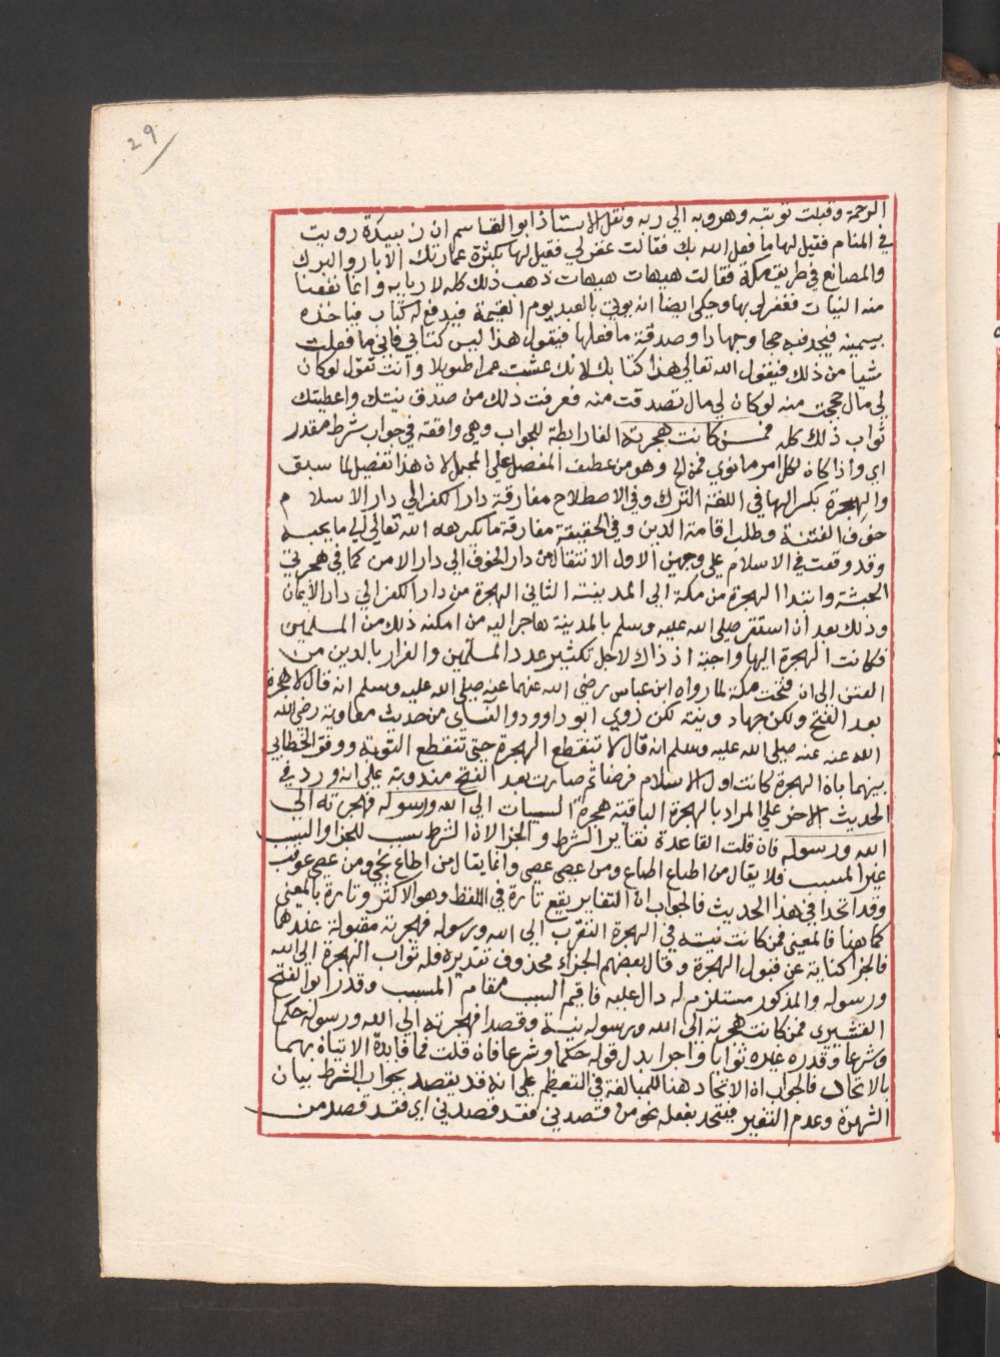 29
الرحمة وقبلت توبته وهروبه الي ربه ونقل الاستاذ ابوالقاسم ان زبيدة رويت
في المنام فقيل لها ما فعل الله بك فقالت غفر لي فقيل لها بكثرة عمارتك الابار والبرك
والمصانع في طريق مكة فقالت هيهات هيهات ذهب ذلك كله لاربابه وانما نفعنا
منه النيات فغفر لي بها وحكي ايضا انه يوتي بالعبد يوم القيمة فيدفع له كتاب فياخذه
بيمينه فيجد فيه حجا وجهادا وصدقة ما فعلها فيقول هذا ليس كتابي فاني ما فعلت
شيا من ذلك فيقول الله تعالي هذا كتابك لانك عشت عمرا طويلا وانت تقول لو كان
لي مال حججت منه لو كان لي مال تصدقت منه فعرفت ذلك من صدق نيتك واعطيتك
ثواب ذلك كله فمن كانت هجرته الفا رابطة للجواب وهي واقعة في جواب شرط مقدر
اي واذا كان لكل امر ما نوي فمن الخ وهو من عطف المفصل علي المجمل لان هذا تفصيل لما سبق
والهجرة بكسر الها في اللغة الترك وفي الاصطلاح مفارقة دار الكفر الي دار الاسلا م
خوف الفتنة وطلب اقامة الدين وفي الحقيقة مفارقة ما يكرهه الله تعالي الي ما يحبه
وقد وقعت في الاسلام علي وجهين الاول الانتقال من دار الخوف الي دار الامن كما في هجرتي
الحبشة وابتدا الهجرة من مكة الي المدينة الثاني الهجرة من دار الكفر الي دار الايمان
وذلك بعد ان استقر صلي الله عليه وسلم بالمدينة هاجر اليه من امكنه ذلك من المسلمين
فكانت الهجرة اليها واجبة اذ ذاك لاجل تكثير عدد المسلمين والفرار بالدين من
الفتن الي ان فتحت مكة لما رواه ابن عباس رضي الله عنهما عنه صلي الله عليه وسلم انه قال لا هجرة
بعد الفتح ولكن جهاد ونية لكن روي ابو داوود والنساي من حديث معاوية رضي الله
الله عنه عنه صلي الله عليه وسلم انه قال لا تنقطع الهجرة حتي تنقطع التوبة ووفق الخطابي
بينهما بان الهجرة كانت اول الاسلام فرضا ثم صارت بعد الفتح مندوبة علي انه ورد في
الحديث الاخر علي المراد بالهجرة الباقية هجرة السيات الي الله ورسوله فهجرته الي
الله ورسوله فان قلت القاعدة تغاير الشرط والجزا لان الشرط سبب للجزا والسبب
غير المسبب فلا يقال من اطاع اطاع ومن عصي عصي وانما يقال من اطاع نجي ومن عصي عوقب
وقد اتحدا في هذا الحديث فالجواب ان التغاير يقع تارة في اللفظ وهو الاكثر وتارة بالمعني
كما هنا فالمعني فمن كانت نيته في الهجرة التقرب الي الله ورسوله فهجرته مقبولة عندهما
فالجزا كناية عن قبول الهجرة وقال بعضهم الجزاء محذوف تقديره فله ثواب الهجرة الي الله
ورسوله والمذكور مستلزم له دال عليه فاقيم السبب مقام المسبب وقدر ابو الفتح
القشيري فمن كانت هجرته الي الله ورسوله نية وقصدا فهجرته الي الله ورسوله حكما
وشرعا وقدره غيره ثوابا واجرا بدل قوله حكما وشرعا فان قلت فما فايدة الاتيان بهما
بالاتحاد فالجواب ان الاتحاد هنا للمبالغة في التعظيم علي انه قد يقصد بجواب الشرط بيان
الشهرة وعدم التغير فيتحد بفعله نحو من قصدني فقد قصدني اي فقد قصد من